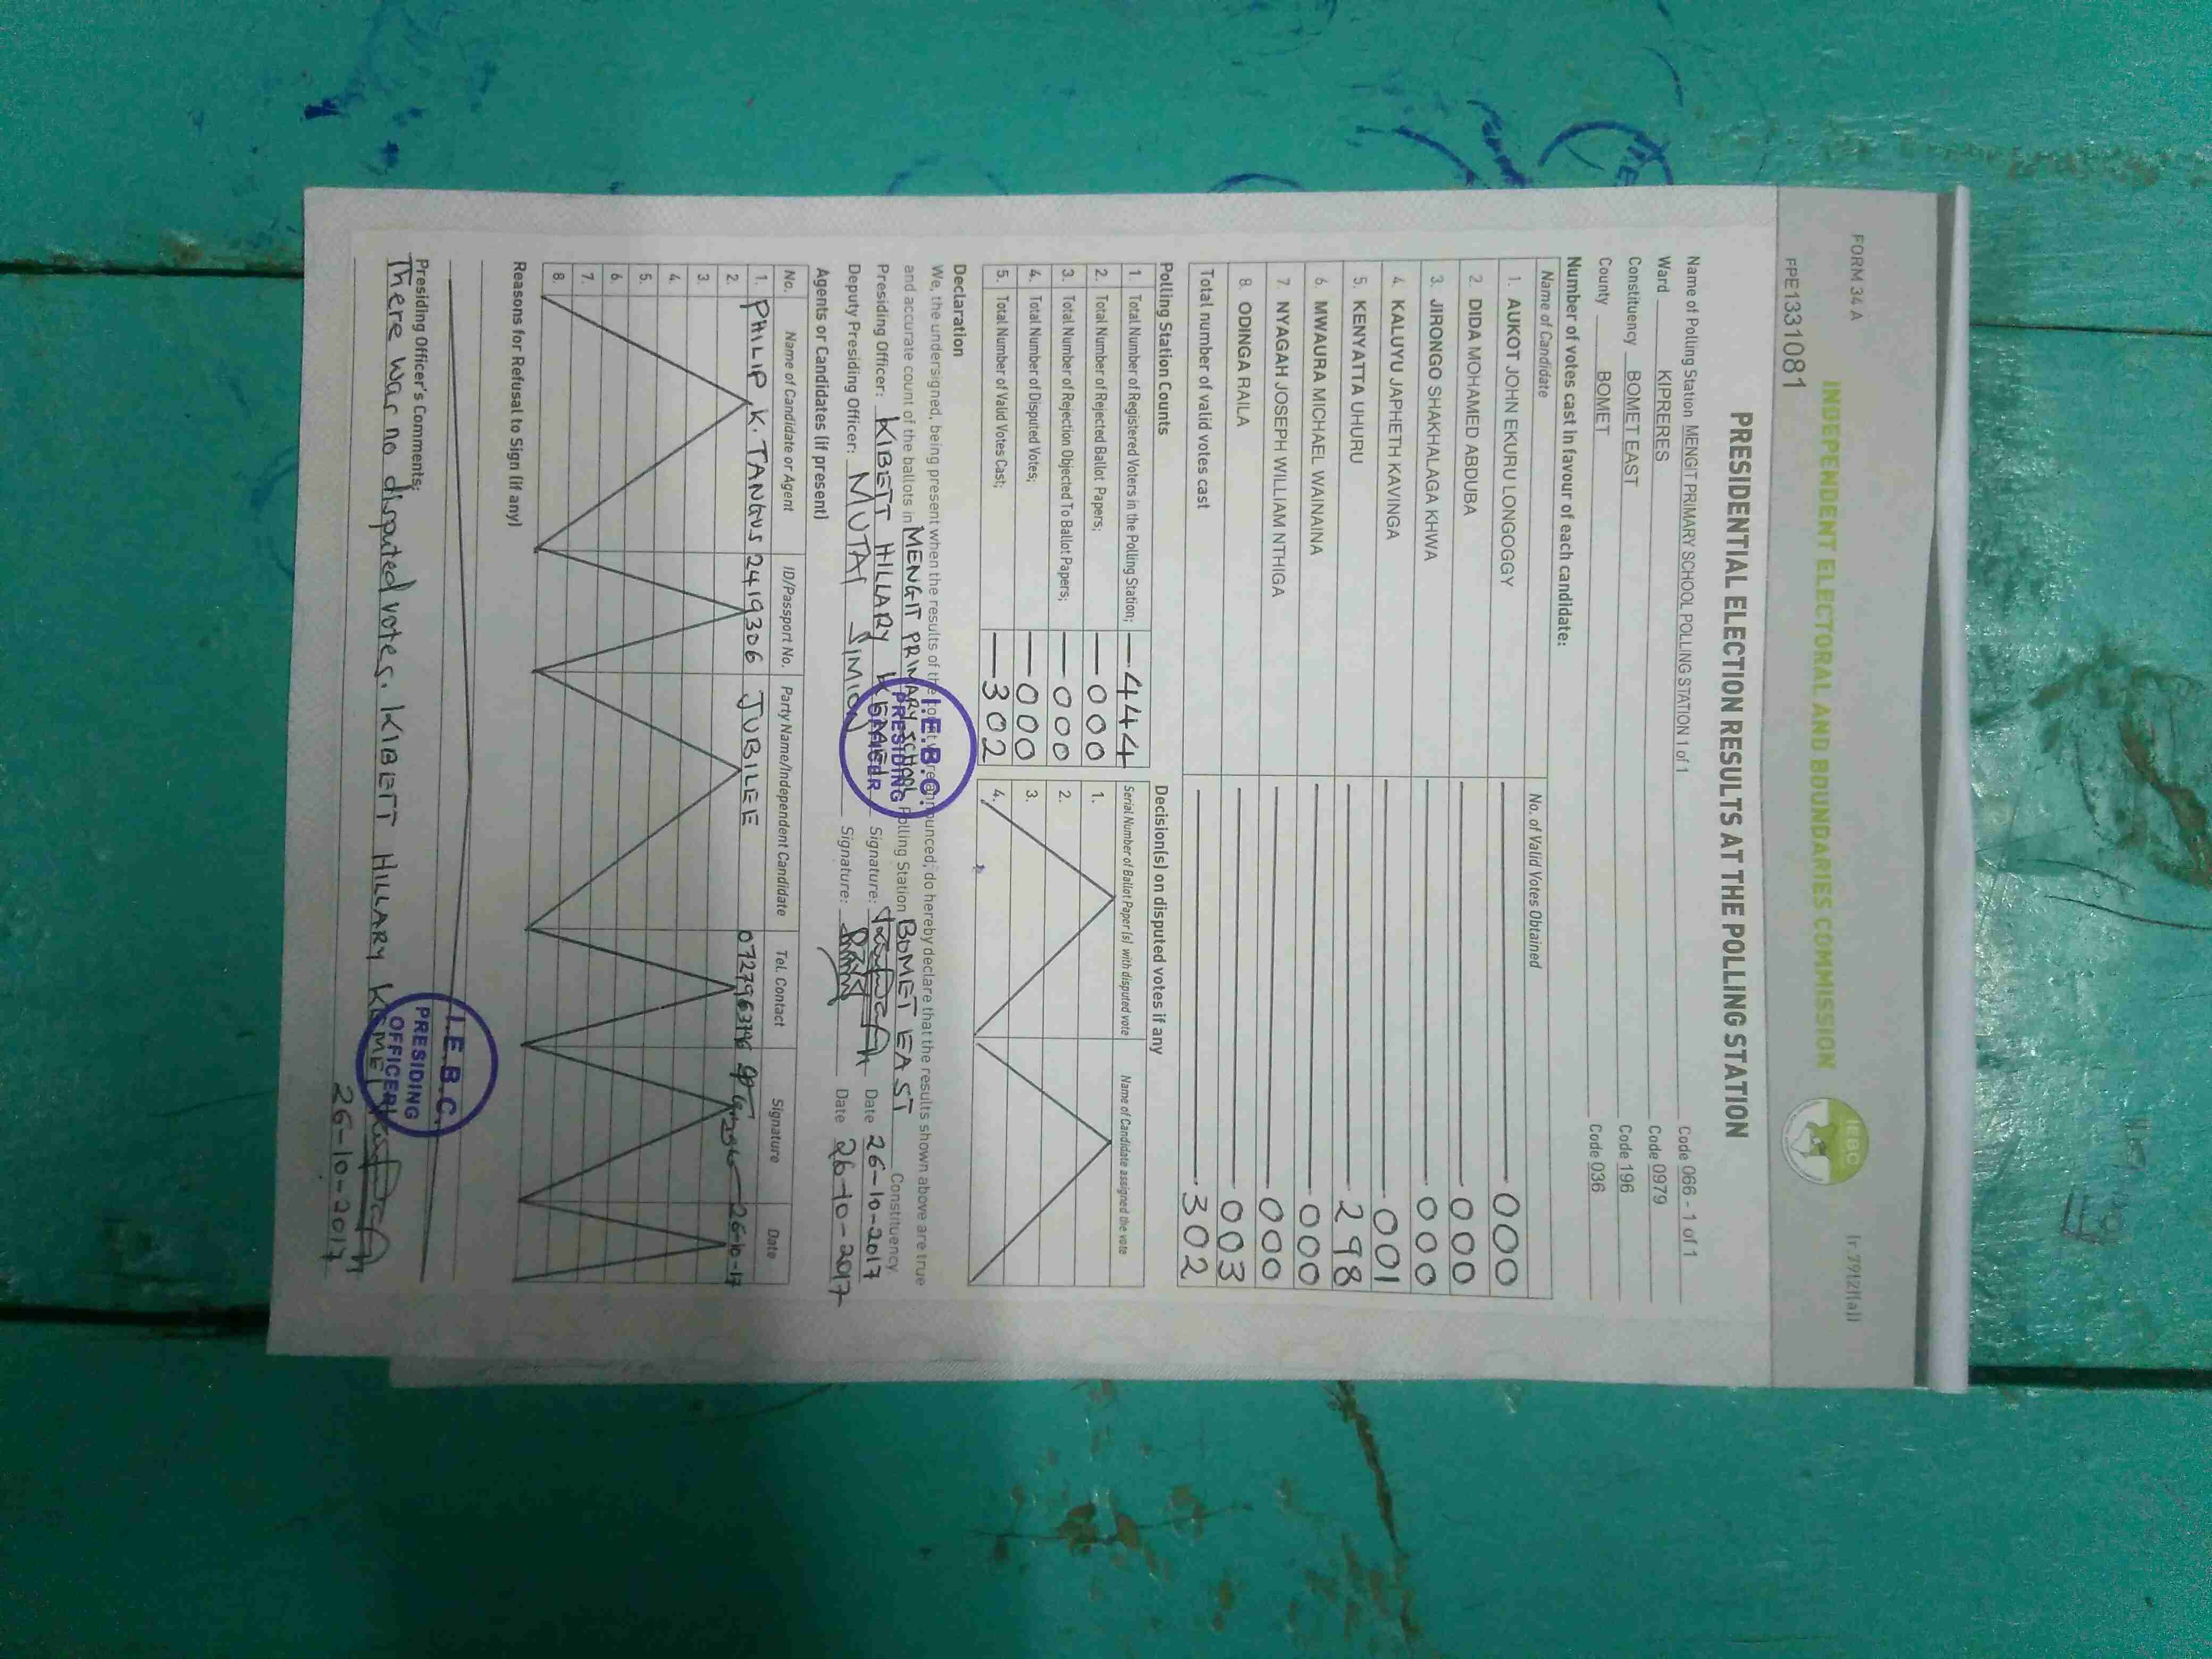 FORM 34 A
(r.79(2)(a))
INDEPENDENT ELECTORAL AND BOUNDARIES COMMISSION
IEBC
FPE1331081
PRESIDENTIAL ELECTION RESULTS AT THE POLLING STATION
Name of Polling Station MENGIT PRIMARY SCHOOL POLLING STATION 1 of 1 Code 066 - 1 of 1
Ward KIPRERES Code 0979
Constituency BOMET EAST Code 196
County BOMET Code 036
Number of votes cast in favour of each candidate:
Name of Candidate No. of Valid Votes Obtained
1. AUKOT JOHN EKURU LONGOGGY 000
2. DIDA MOHAMED ABDUBA 000
3. JIRONGO SHAKHALAGA KHWA 000
4. KALUYU JAPHETH KAVINGA 001
5. KENYATTA UHURU 298
6. MWAURA MICHAEL WAINAINA 000
7. NYAGAH JOSEPH WILLIAM NTHIGA 000
8. ODINGA RAILA 003
Total number of valid votes cast 302
Polling Station Counts
1. Total Number of Registered Voters in the Polling Station; 444
2. Total Number of Rejected Ballot Papers; 000
3. Total Number of Rejection Objected To Ballot Papers; 000
4. Total Number of Disputed Votes; 000
5. Total Number of Valid Votes Cast; 302
Decision(s) on disputed votes if any
Serial Number of Ballot Paper (s) with disputed vote Name of Candidate assigned the vote
1.
2.
3.
4.
Declaration
We, the undersigned, being present when the results of the count were announced, do hereby declare that the results shown above are true
and accurate count of the ballots in MENGIT PRIMARY SCHOOL Polling Station BOMET EAST Constituency
Presiding Officer: KIBETT HILLARY Signature: Date 26-10-2017
Deputy Presiding Officer: MUTAI SIMION Signature: Date 26-10-2017
I.E.B.C. PRESIDING OFFICER
Agents or Candidates (if present)
No. Name of Candidate or Agent ID/Passport No. Party Name/Independent Candidate Tel. Contact Signature Date
1. PHILIP K. TANGUS 2419306 JUBILEE 0727963796 26-10-17
2.
3.
4.
5.
6.
7.
8.
Reasons for Refusal to Sign (if any)
Presiding Officer's Comments;
There was no disputed votes. KIBETT HILLARY
I.E.B.C. PRESIDING OFFICER
26-10-2017